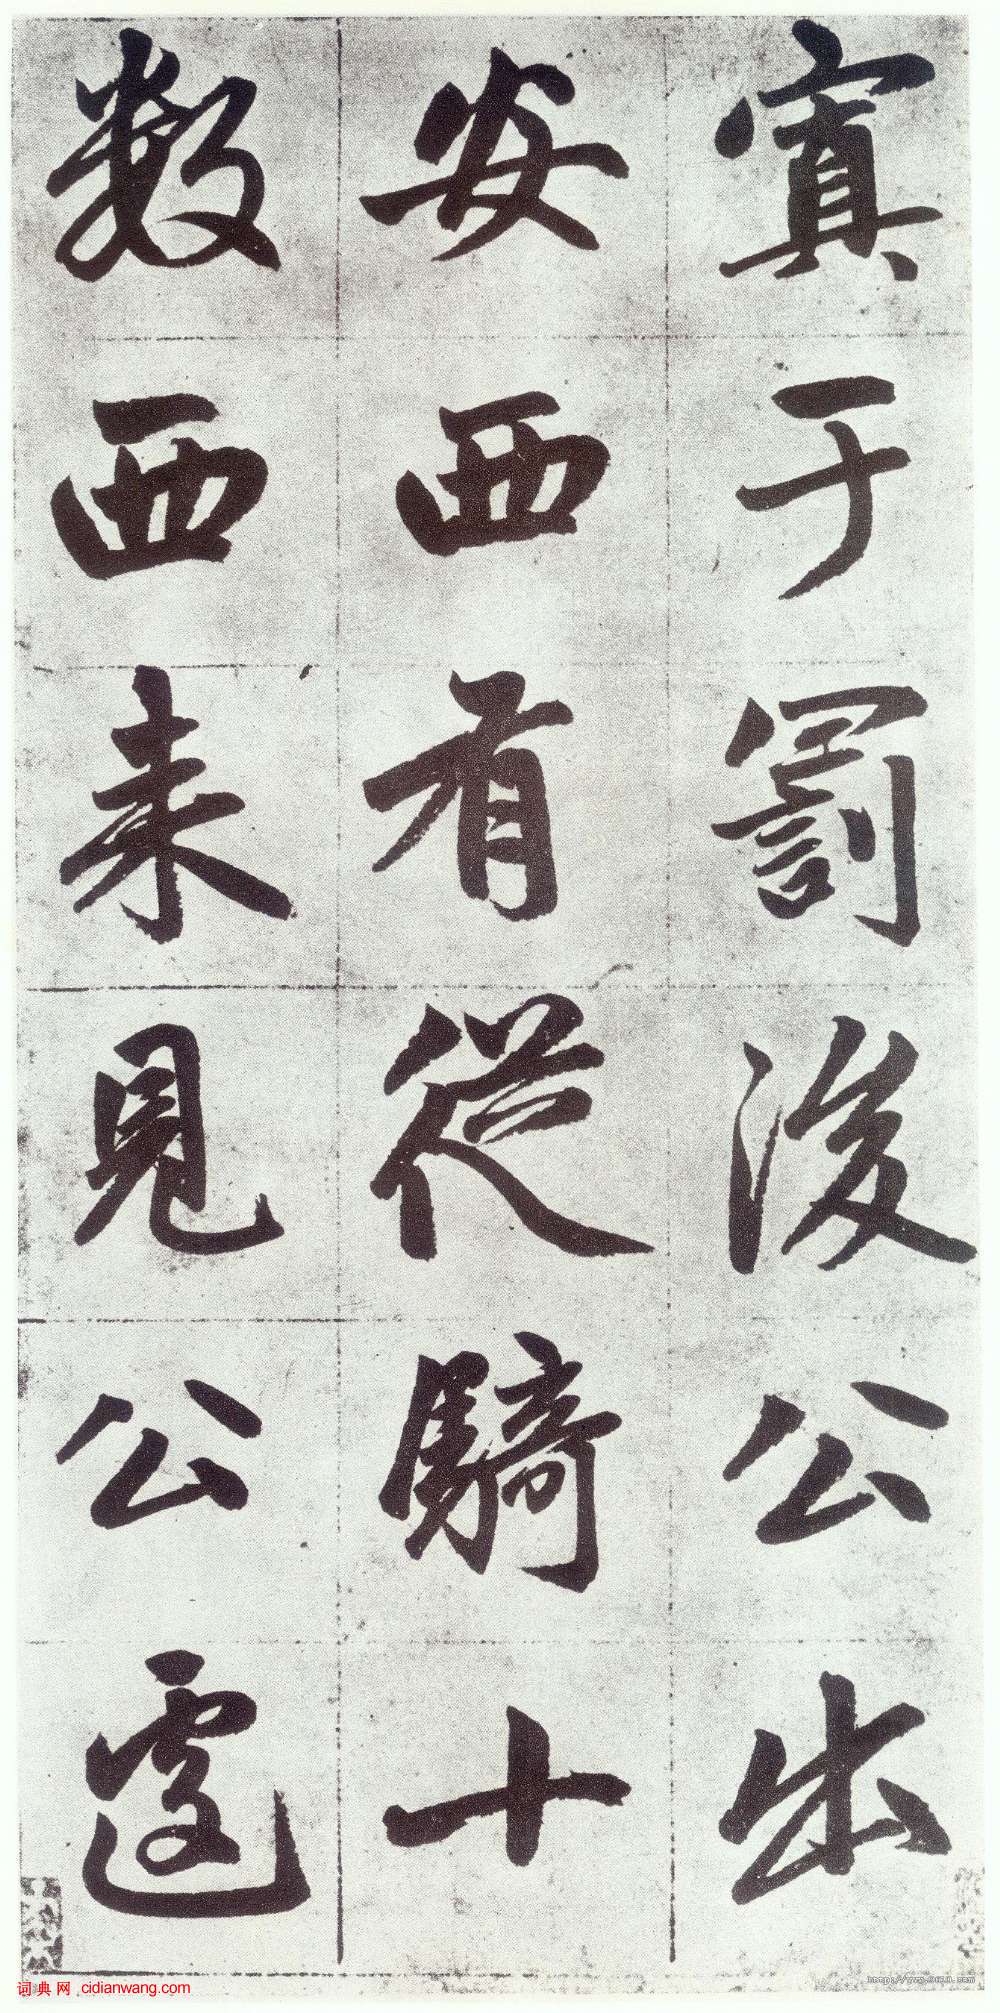 寘于罰後公出
安西有從騎十
數西来見公遽
词典网 cidianwang.com